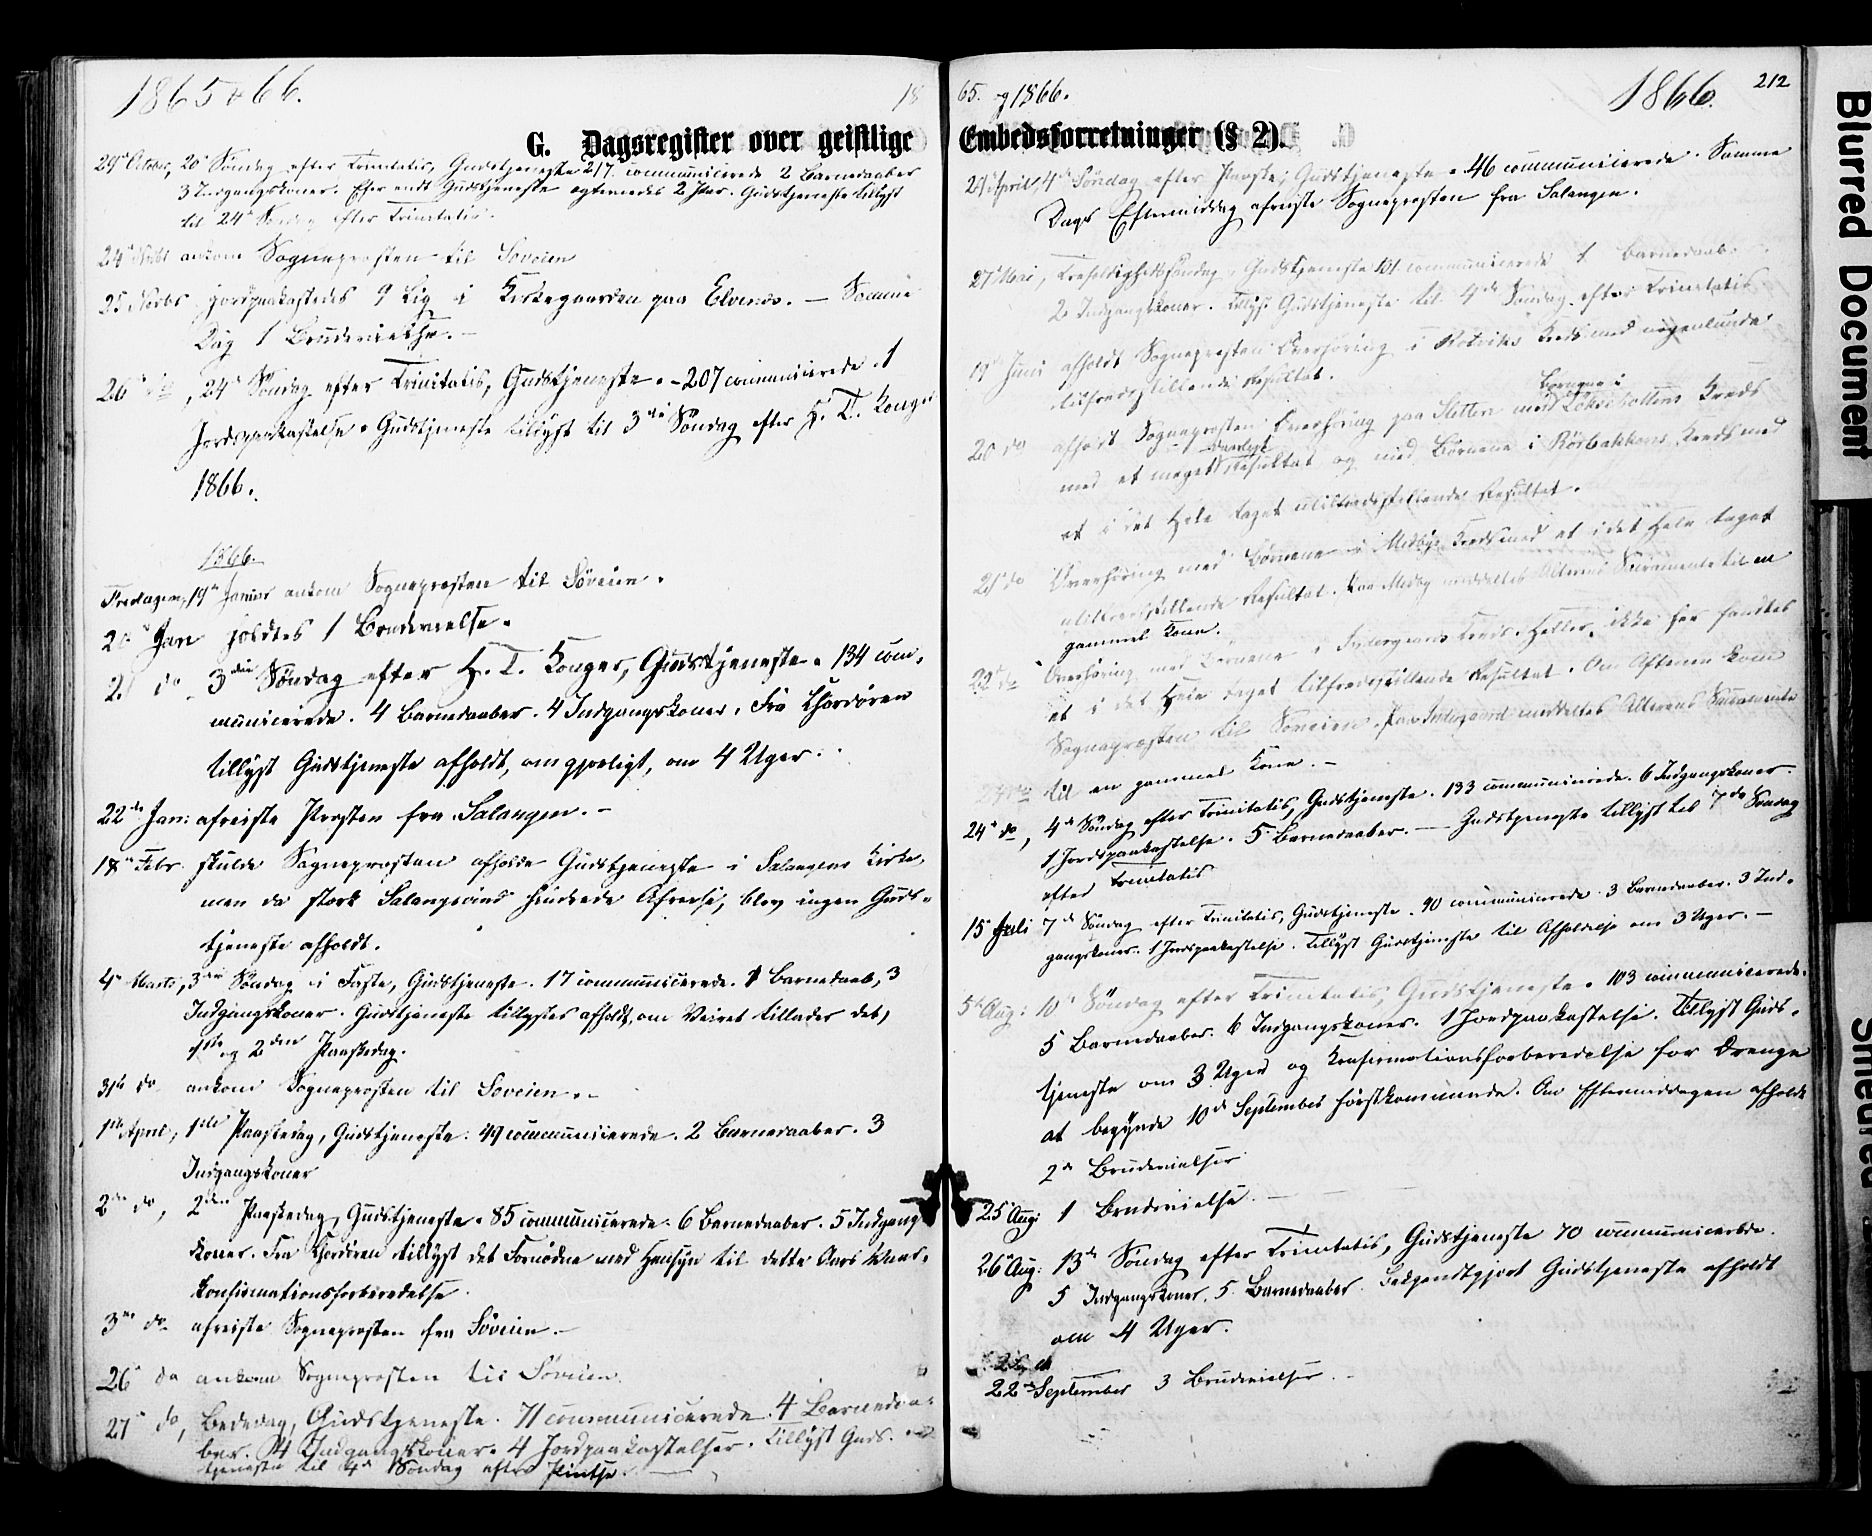 1865 & 66.
18
G. Dagsregister over geistlige
29de October, 20de Søndag efter Trinitatis, Gudstjeneste 217 communicerede 2 Barnedaaber
3 Indgangskoner. Efter endt Gudstjeneste egteviedes 2 Par. Gudstjeneste tillyst
til 24de Søndag efter Trinitatis.
24de Novbr ankom Sogneprosten til Soveien
25 Novbr jordpaakastedes 9 Lig i Kirkegaarden paa Elvenes. — Samme
Dag 1 Brudevielse. —
26de do, 24de Søndag efter Trinitatis, Gudstjeneste. – 207 communicerede. 1
Jordpaakastelse. Gudstjeneste tillyst til 3die Søndag efter H. T. Konger
1866.
1866.
Fredagen, 19de Januar ankom Sogneprosten til Søveien.
20de Jan holdtes 1 Brudevielse.
21 do 3die Søndag efter H. T. Konger, Gudstjeneste. 134 com-
municerede. 4 Barnedaaber. 4 Indgangskoner. Fra Chordøren
tillyst Gudstjeneste afholdt, om gjørligt, om 4 Uger.
22de Jan: afreiste Prosten fra Salangen. –
18de Febr skulde Sogneprosten afholde Gudstjeneste i Salangens Kirke,
men da stærk Salangsvind hindrede Afreise, blev ingen Guds-
tjeneste afholdt.
4de Marts, 3die Søndag i Faste, Gudstjeneste. 17 communicerede. 1 Barnedaab, 3
Indgangskoner. Gudstjeneste tillystes afholdt, om Veiret tillader det,
1ste og 2den Paaskedag.
31te do ankom Sogneprosten til Soveien. –
1ste April, 1ste Paaskedag, Gudstjeneste. 49 communicerede. 2 Barnedaaber. 3
Indgangskoner
2den do, 2den Paaskedag, Gudstjeneste. 85 communicerede. 6 Barnedaaber. 5 Indgangs
koner. Fra Chordøren tillyst det Fornødne med Hensyn til dette Aars
Konfirmationsforberedelse.
3die do afreiste Sogneprosten fra Søveien. –
26de do ankom Sogneprosten til Søveien.
27de do, Bededag, Gudstjeneste. 71 communicerede. 4 Barnedaa-
ber. 4 Indgangskoner. 4 Jordpaakastelser. Tillyst Guds-
tjeneste til 4de Søndag efter Pintse.
65. og 1866.
1866.
212
Embedsforretninger (§ 2).
29de April, 4de Søndag efter Paaske, Gudstjeneste. 46 communicerede. Samme
Dags Eftermiddag afreiste Sogneprosten fra Salangen.
27de Mai, Trefoldighedssøndag, Gudstjeneste 101 communicerede 1 Barnedaab.
2 Indgangskoner. Tillyst Gudstjeneste til 4de Søndag efter Trinitatis
19de Juni afholdt Sogneprosten Overhøring i Rotviks Kreds med nogenlunde
tilfredsstillende Resultat.
Børnene i
20 do afholdt Sogneprosten Overhøring paa Sletten med Kreds
daarligt
med et meget Resultat og med Børnene i Rørbakkens Kreds med
et i det Hele taget utilfredsstillende Resultat.
21de do Overhøring med Børnene i Medbys Kreds med et i det Hele taget
utilfredsstillende Resultat. Paa Medby meddeltes Alterens Sacramente til en
gammel Kone.
22de do Overhøring med Børnene i Kreds. Heller ikke her fandtes
et i det Hele taget tilfredsstillende Resultat. Om Aftenen kom
Sogneprosten til Soveien. Paa meddeltes Alterens Sacramente
til en gammel Kone. –
24de do, 4de Søndag efter Trinitatis, Gudstjeneste. 133 communicerede. 6 Indgangskoner.
1 Jordpaakastelse. 5 Barnedaaber. — Gudstjeneste tillyst til 7de Søndag
efter Trinitatis
15de Juli 7de Søndag efter Trinitatis, Gudstjeneste. 90 communicerede. 3 Barnedaaber. 3 Ind-
gangskoner. 1 Jordpaakastelse. Tillyst Gudstjeneste til Afholdelse om 3 Uger. –
5te Aug: 10de Søndag efter Trinitatis, Gudstjeneste. 103 communicerede.
5 Barnedaaber. 6 Indgangskoner. 1 Jordpaakastelse. Tillyst Guds-
tjeneste om 3 Uger og Konfirmationsforberedelse for Drenge
at begynde 10de September førstkommende. Om Eftermiddagen afholdt
2de Brudevielser
25de Aug: 1 Brudevielse. —
26de Aug: 13de Søndag efter Trinitatis, Gudstjeneste 70 communicerede.
5 Indgangskoner. 5 Barnedaaber. Bekjendtgjort Gudstjeneste afholdt
om 4 Uger.
22de September 3 Brudevielser. –
Blurred Document
Smeared